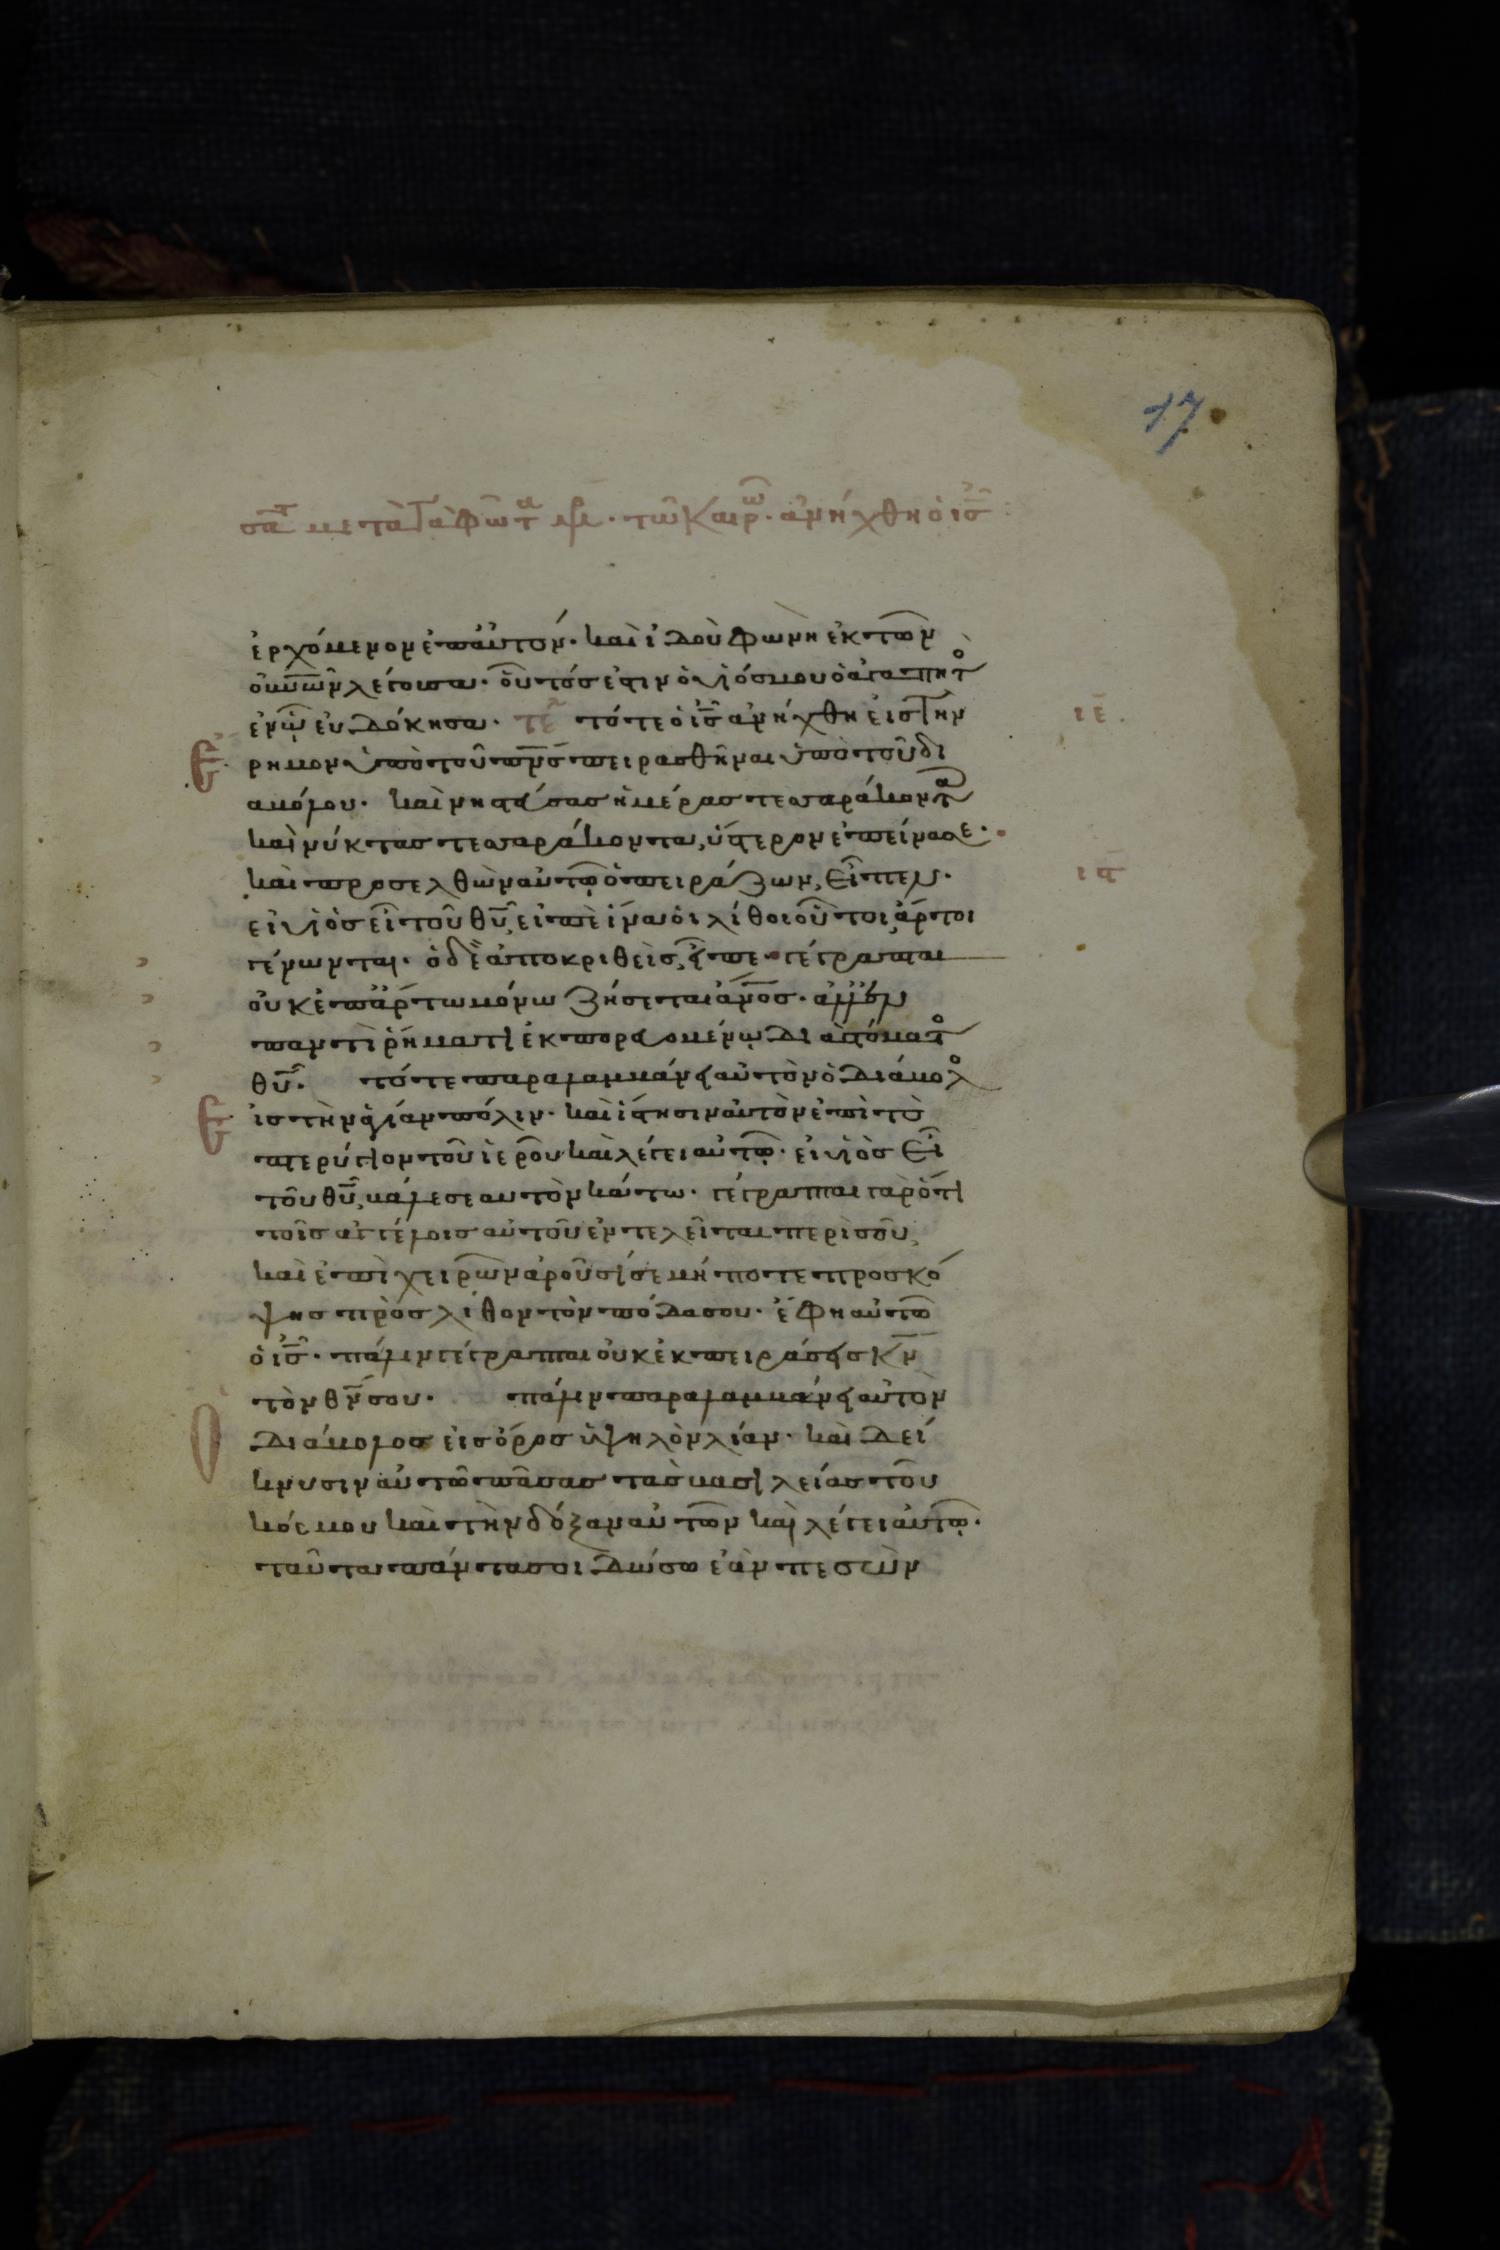 17
σα̅τ μετὰ τὰ φῶτα· τῶ καιρῶ· ἀνήχθη ὁ ις̅
ἐρχόμενον ἐπ αὐτόν· καὶ ἰδοὺ φωνὴ ἐκ τῶν
οὐνῶν λέγουσα· οὗτός ἐστιν ὁ υἱός μου ὁ ἀγαπητὸ
ἐν ᾧ εὐδόκησα· τε τότε ὁ ις̅ ἀνήχθη εἰς τὴν
ιε̅
ἔ ρημον ὑπὸ τοῦ πνς̅ πειρασθῆναι ὑπὸ τοῦ δι
αβόλου· καὶ νηστεύσας ἡμέρας τεσσαράκοντα
καὶ νύκτας τεσσαράκοντα, ὕστερον ἐπείνασε·
καὶ προσελθὼν αὐτῷ ὁ πειράζων, εἶπεν·
ιϛ̅
εἰ υἱὸς εἶ τοῦ θυ̅, εἰπὲ ἵνα οἱ λίθοι οὗτοι, ἄρτοι
γένωνται· ὁ δὲ ἀποκριθεὶς, εἶπε· γέγραπται
οὐκ ἐπ ἄρτω μόνω ζήσεται ἄνος̅· ἀλλ ἐν
παντὶ ῥήματι ἐκπορευομένῳ διὰ στόματο
θυ̅· τότε παραλαμβάνει αὐτὸν ὁ διάβολο
ε ἰς τὴν ἁγίαν πόλιν· καὶ ἵστησιν αὐτὸν ἐπὶ τὸ
πτερύγιον τοῦ ἱεροῦ καὶ λέγει αὐτῷ· εἰ υἱὸς εἶ
τοῦ θυ̅, βάλε σεαυτὸν κάτω· γέγραπται γὰρ ὅτι
τοῖς ἀγγέλοις αὐτοῦ ἐντελεῖται περὶ σοῦ,
καὶ ἐπὶ χειρῶν ἀροῦσί σε μήποτε προσκό
ψης πρὸς λίθον τὸν πόδα σου· ἔφη αὐτῶ
ὁ ις̅· πάλιν γέγραπται οὐκ ἐκπειράσεις κν̅
τὸν θν̅ σου· πάλιν παραλαμβάνει αὐτὸν
ὁ διάβολος εἰς ὄρος ὑψηλὸν λίαν· καὶ δεί
κνυσιν αὐτῶ πάσας τὰς βασιλείας τοῦ
κόσμου καὶ τὴν δόξαν αὐτῶν καὶ λέγει αὐτῷ·
ταῦτα πάντα σοι δώσω ἐὰν πεσὼν